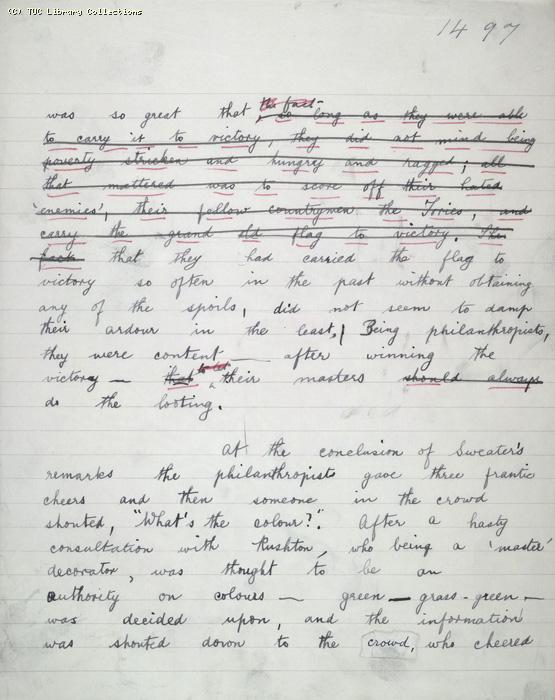 (C) TUC Library Collections
1497
the fact
was so great that, so long as they were able
to carry it to victory, they did not mind being
poverty stricken and hungry and ragged; all
that mattered was to score off their hated
'enemies', their fellow countrymen the Tories, and
carry the grand old flag to victory. The
fact that they had carried the flag to
victory so often in the past without obtaining
any of the spoils, did not seem to damp
their ardour in the least. Being philanthropists,
they were content — after winning the
to let
victory — that their masters should always
do the looting.
At the conclusion of Sweater's
remarks the philanthropists gave three frantic
cheers and then someone in the crowd
shouted, "What's the colour?". After a hasty
consultation with Rushton, who being a 'master'
decorator, was thought to be an
authority on colours — green — grass-green —
was decided upon, and the information
was shouted down to the crowd, who cheered